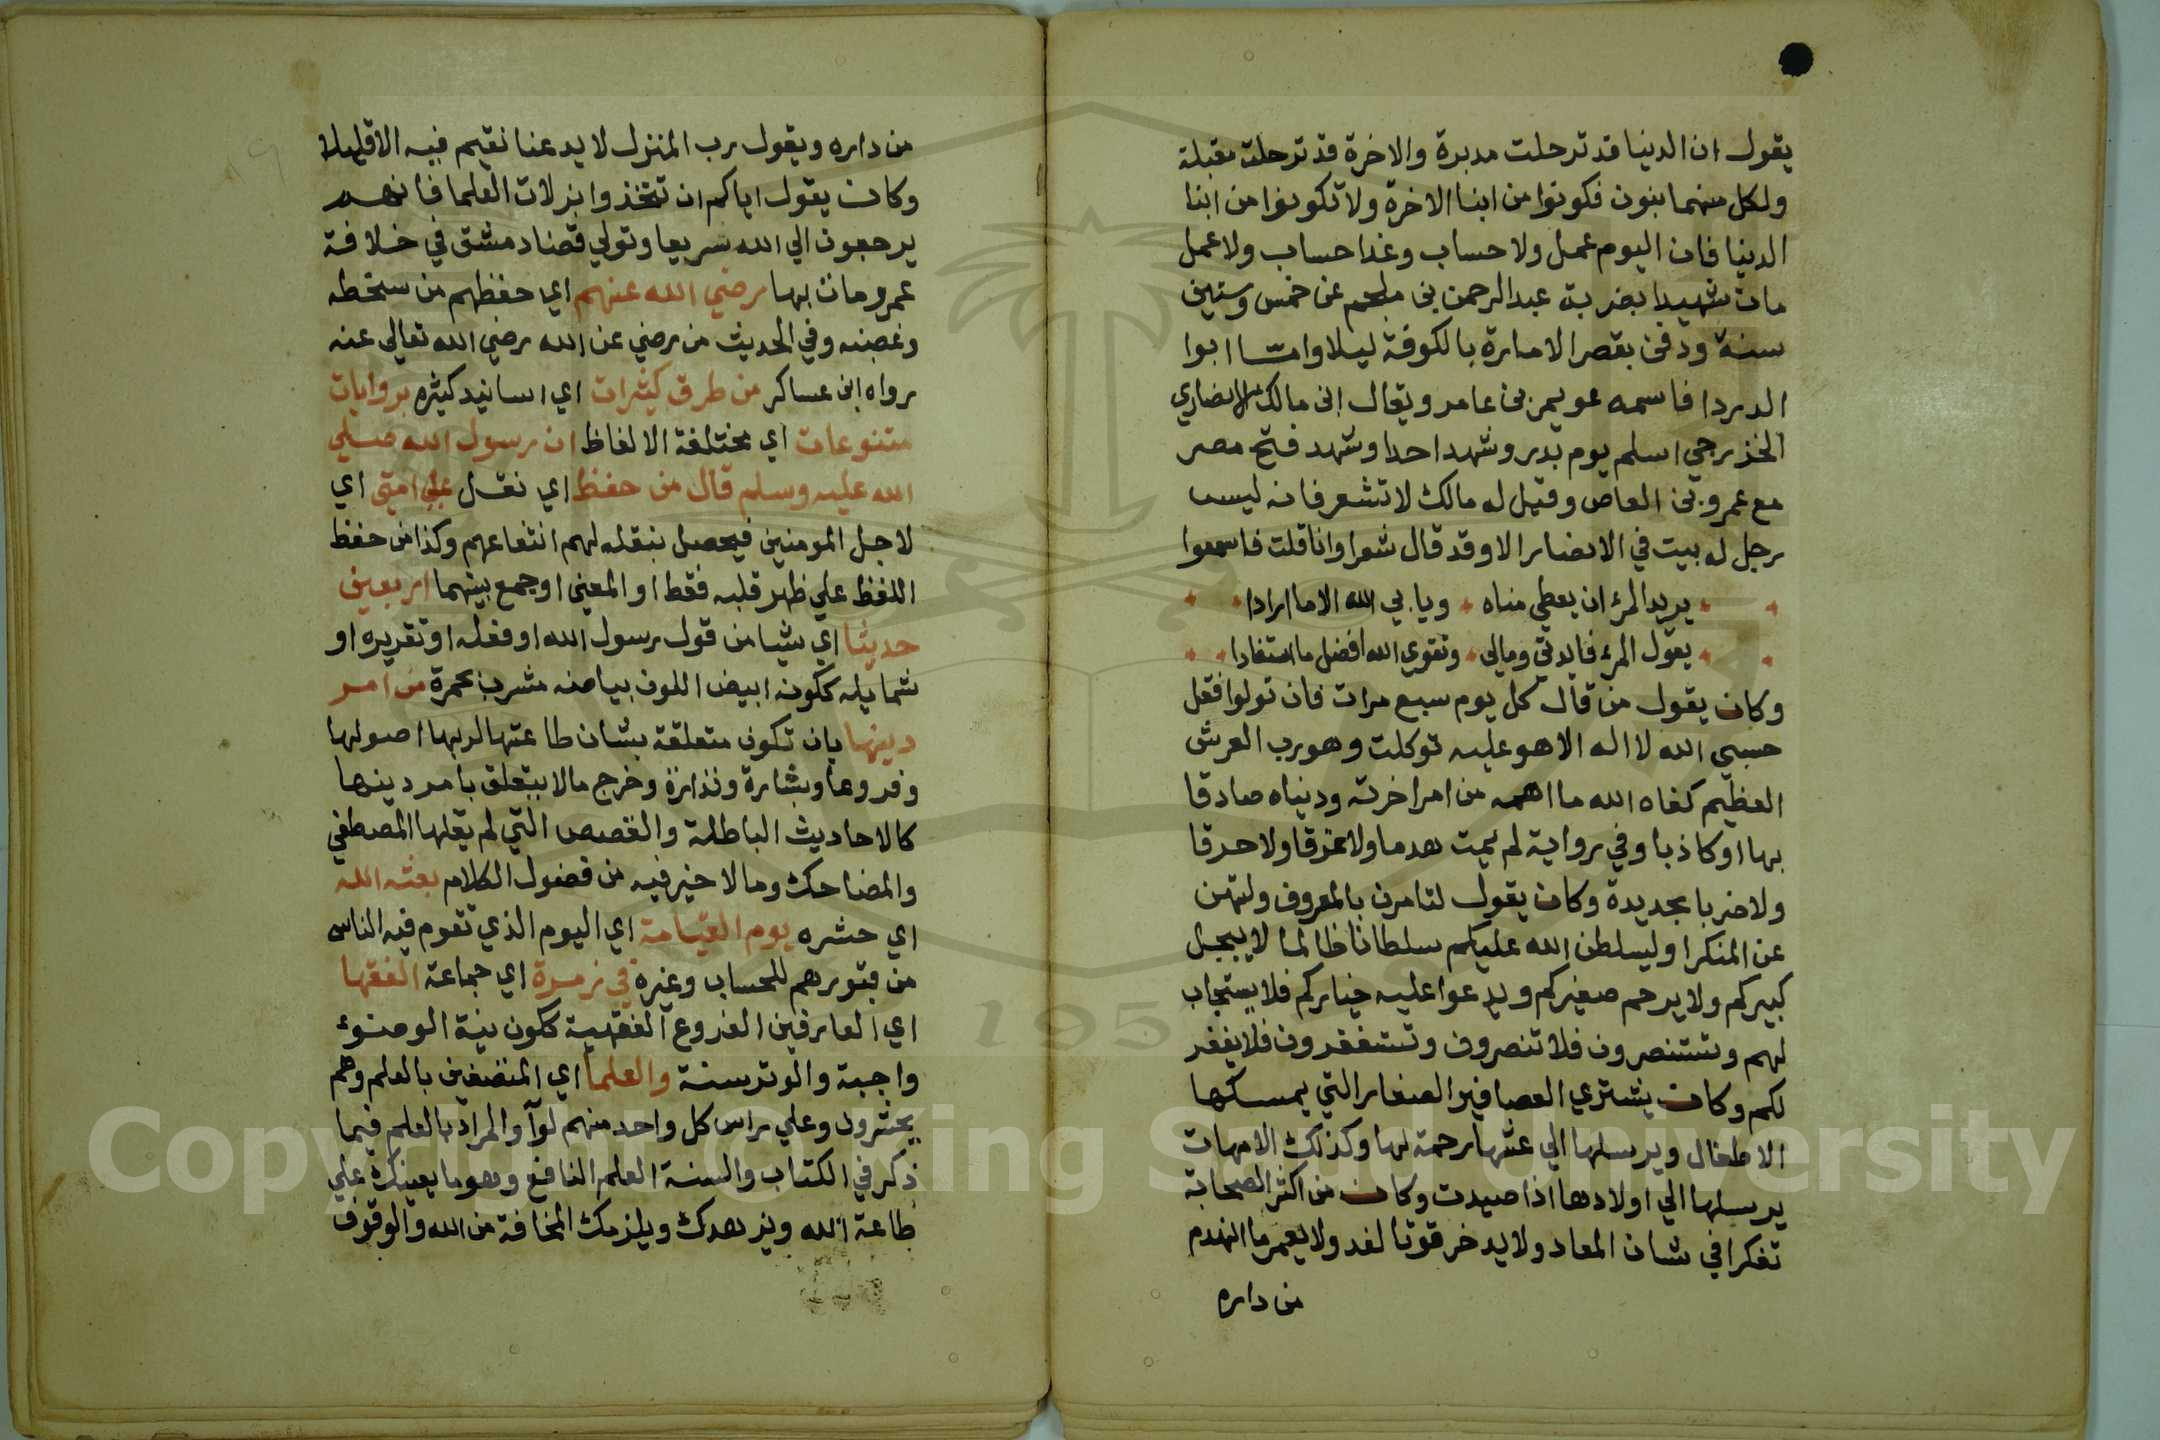 يقول ان الدنيا قد ترحلت مدبرة والاخرة قد ترحلت مقبلة
ولكل منهما بنون فكونوا من ابنا الاخرة ولا تكونوا من ابنا
الدنيا فان اليوم عمل ولا حساب وغدا حساب ولا عمل
مات شهيدا بضربة عبد الرحمن بن ملجم عن خمس وستين
سنة ودفن بقصر الامارة بالكوفة ليلا واما ابوا
الدردا فاسمه عويمر بن عامر ويقال ابن مالك الانصاري
الخزرجي اسلم يوم بدر وشهد احدا وشهد فتح مصر
مع عمرو بن العاص وقيل له مالك لا تشعر فانه ليس
رجل له بيت في الانصار الا وقد قال شعرا وانا قلت فاسمعوا
يريد المرء ان يعطي مناه ويابي الله الا ما ارادا
يقول المرء فايدتي ومالي وتقوي الله افضل ما استفادا
وكان يقول من قال كل يوم سبع مرات فان تولوا فقل
حسبي الله لا اله الا هو عليه توكلت وهو رب العرش
العظيم كفاه الله ما اهمه من امر اخرته ودنياه صادقا
بها او كاذبا وفي رواية لم يمت هدما ولا غرقا ولا حرقا
ولا ضربا بحديدة وكان يقول لتامرن بالمعروف ولتهن
عن المنكر او ليسلطن الله عليكم سلطانا ظالما لا يبجل
كبيركم ولا يرحم صغيركم ويدعوا عليه خياركم فلا يستجاب
لهم وتستنصرون فلا تنصرون وتستغفرون فلا يغفر
لكم وكان يشتري العصافير الصغار التي يمسكها
الاطفال ويرسلها الي عشها رحمة لها وكذلك الامهات
يرسلها الي اولادها اذا صيدت وكان من اكثر الصحابة
تفكرا في شان المعاد ولا يدخر قوتا لغد ولا يعمر ما انهدم
من داره
من داره ويقول رب المنزل لا يدعنا نقيم فيه الا قليلا
وكان يقول اياكم ان تتخذوا بزلات العلما فانهم
يرجعون الي الله سريعا وتولي قضا دمشق في خلافة
عمر ومات بها رضي الله عنهم اي حفظهم من سخطه
وغضبه وفي الحديث من رضي عن الله رضي الله تعالي عنه
رواه ابن عساكر من طرق كثيرات اي اسانيد كثيره بروايات
متنوعات اي مختلفة الالفاظ ان رسول الله صلي
الله عليه وسلم قال من حفظ اي نقل علي امتي اي
لاجل المومنين فيحصل بنقله لهم انتفاعهم وكذا من حفظ
اللفظ علي ظهر قلبه فقط او المعني او جمع بينهما اربعين
حديثا اي شيا من قول رسول الله او فعله او تقريره او
شمايله ككونه ابيض اللون بياضه مشرب بحمرة من امر
دينها بان تكون متعلقة بشان طاعتها لربها اصولها
وفروعا وبشارة ونذارة وخرج ما لا يتعلق بامر دينها
كالاحاديث الباطلة والقصص التي لم يقلها المصطفي
والمضاحك وما لا خير فيه من فضول الكلام بعثه الله
اي حشره يوم القيامة اي اليوم الذي تقوم فيه الناس
من قبورهم للحساب وغيره في زمرة اي جماعة الفقها
اي العارفين الفروع الفقهية ككون نية الوضوء
واجبة والوتر سنة والعلما اي المتصفين بالعلم وهم
يحشرون وعلي راس كل واحد منهم لوآ والمراد بالعلم فيما
ذكر في الكتاب والسنة العلم النافع وهو ما يعينك علي
طاعة الله ويزهدك ويلزمك المخافة من الله والوقوف
Copyright © King Saud University
195